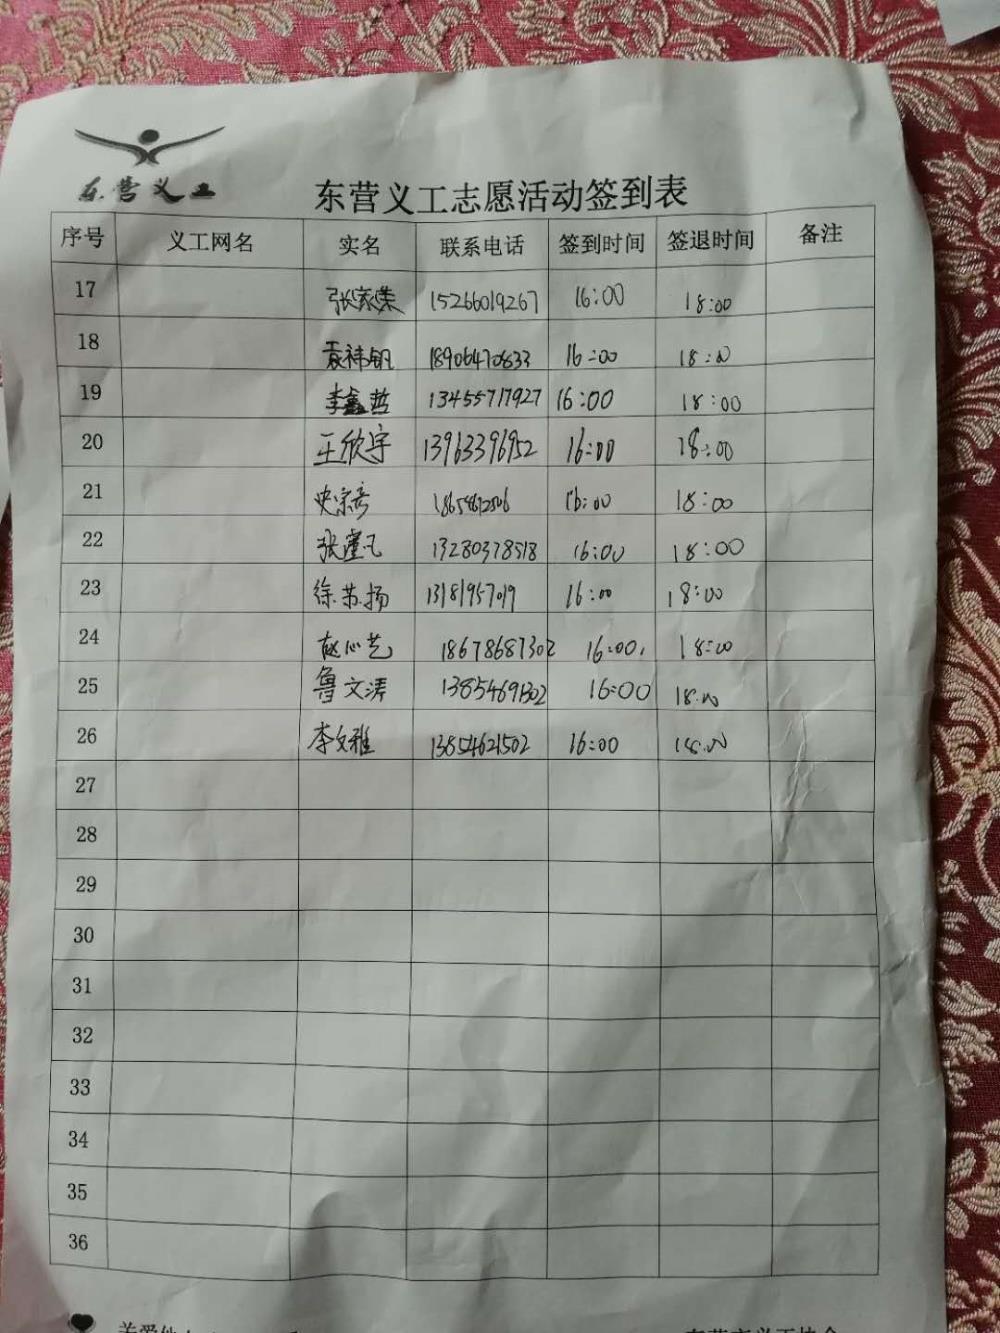 东营义工
东营义工志愿活动签到表
序号 义工网名 实名 联系电话 签到时间 签退时间 备注
17 张家荣 15266019267 16:00 18:00
18 袁祎钒 18906470833 16:00 18:00
19 李鑫哲 13455717927 16:00 18:00
20 王欣宇 13963396952 16:00 18:00
21 史宗彦 16:00 18:00
22 张 13280378518 16:00 18:00
23 徐苏扬 13181957019 16:00 18:00
24 赵心艺 18678687302 16:00 18:00
25 鲁文涛 13854691302 16:00 18:00
26 李文雅 13854621502 16:00 18:00
27
28
29
30
31
32
33
34
35
36